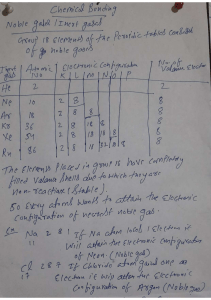 Chemical Bonding
Noble gases / Inert gases
Group 18 elements of the Periodic table consist
of noble gases.
Inert gas Atomic No Electronic Configuration No. of Valence electron
K L M N O P
He 2 2 2
Ne 10 2 8 8
Ar 18 2 8 8 8
Kr 36 2 8 18 8 8
Xe 54 2 8 18 18 8 8
Rn 86 2 8 18 32 18 8 8
The Elements placed in group 18 have completely
filled valence shells due to which they are
non-reactive (stable).
So every atom wants to attain the electronic
configuration of nearest noble gas.
Na 2 8 1 If Na atom loses 1 electron it
11 will attain the electronic configuration
of Neon (Noble gas)
Cl 2 8 7 If Chlorine atom gained one
17 electron it will attain the electronic
configuration of Argon (Noble gas)